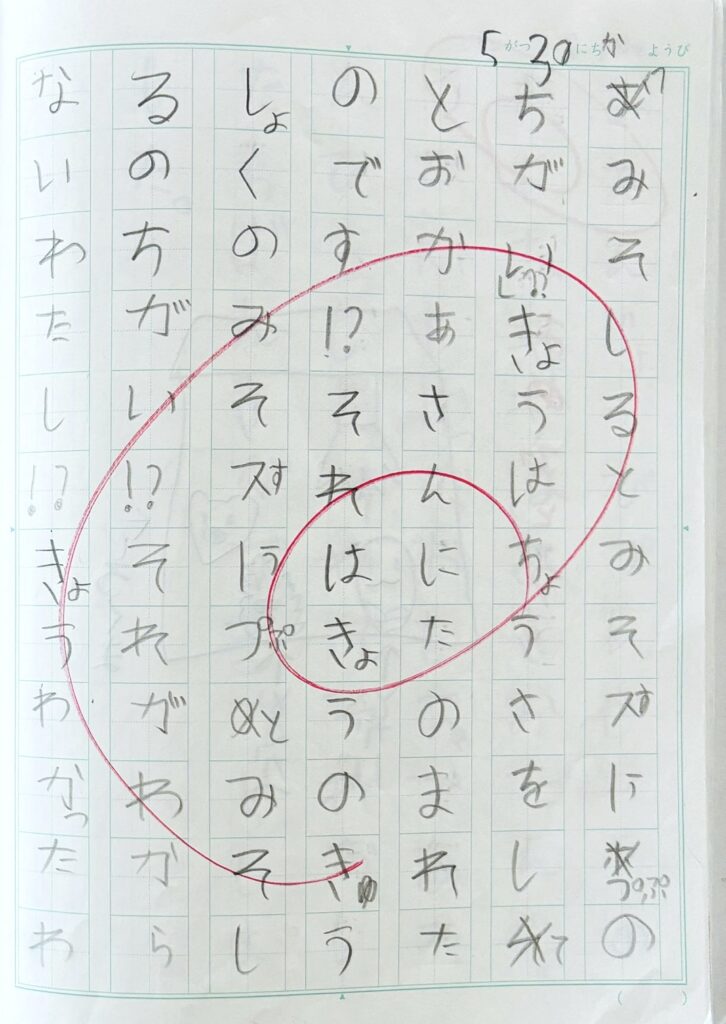 5がつ30にちかようび
みそしるとみそスープの
ちがい!?きょうはちょうさをして
とおかあさんにたのまれた
のです!?それはきょうのきゅう
しょくのみそスープとみそし
るのちがい!?それがわから
ないわたし!?きょうわかったわ